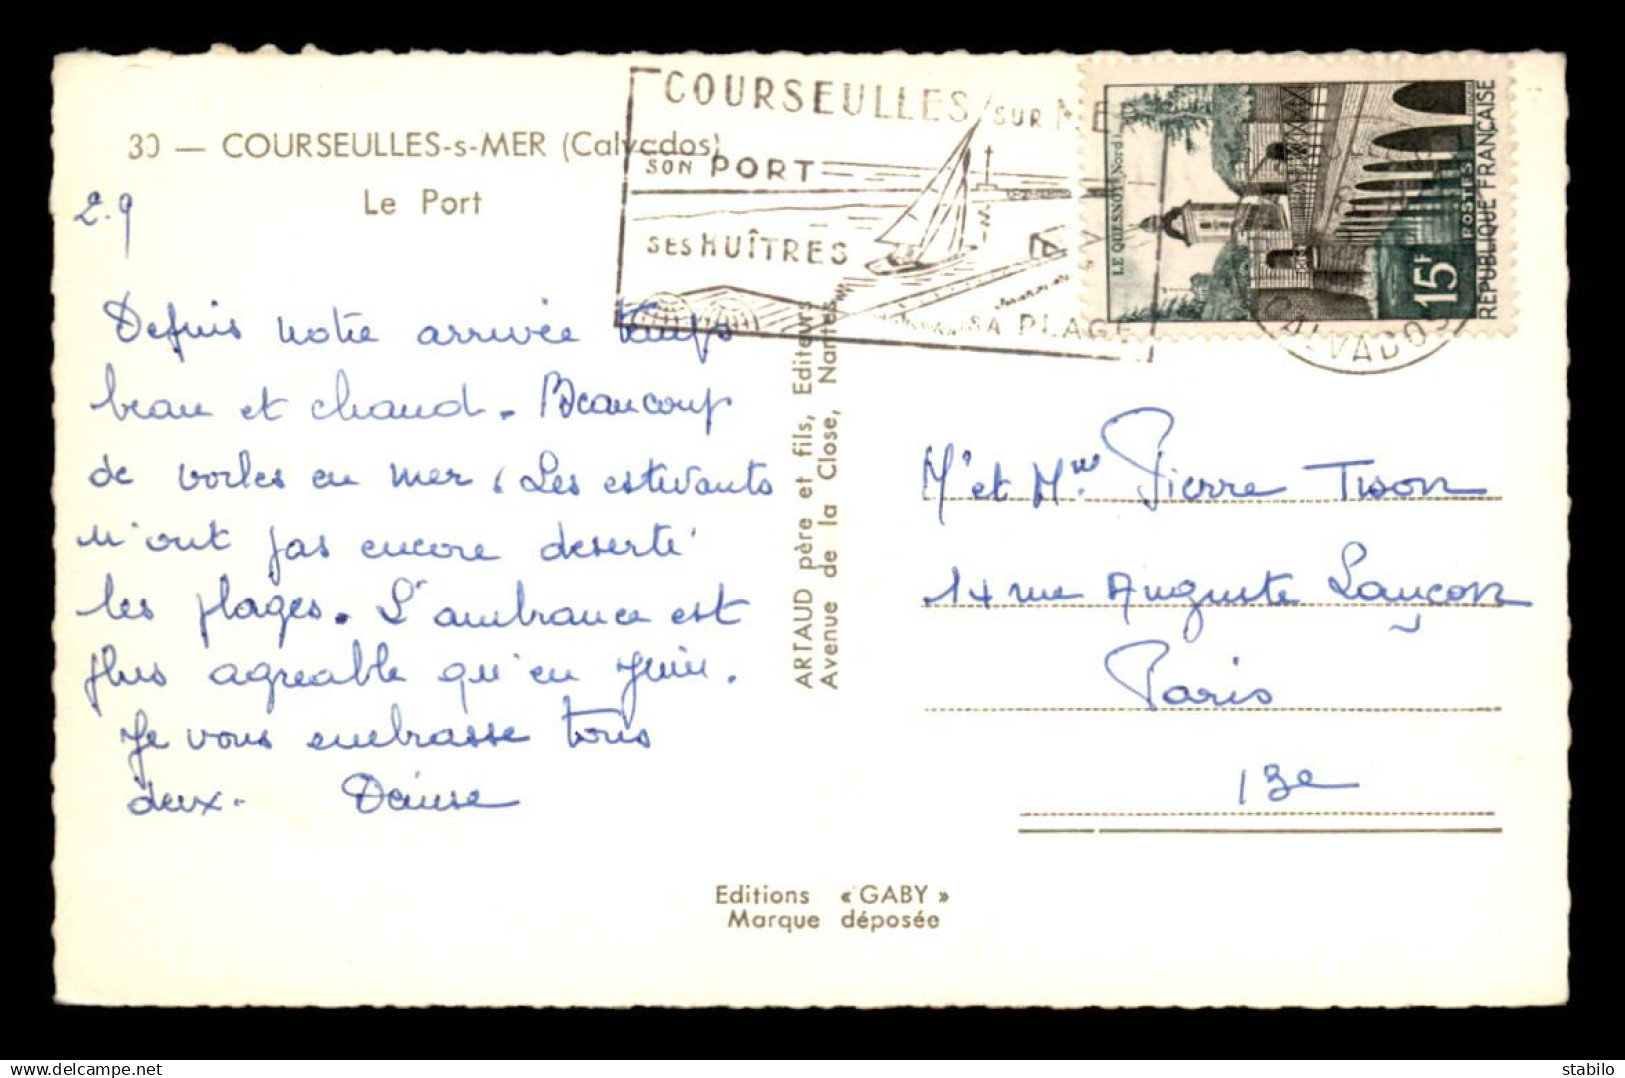 30 — COURSEULLES-s-MER (Calvados)
Le Port
2.9
Depuis notre arrivée temps
beau et chaud. Beaucoup
de voiles en mer, Les estivants
n'ont pas encore deserté
les plages. L'ambiance est
plus agreable qu'en Juin.
Je vous embrasse tous
deux. Denise
COURSEULLES / SUR MER
SON PORT
SES HUÎTRES
SA PLAGE
CALVADOS
LE QUESNOY (Nord)
15F
POSTES
RÉPUBLIQUE FRANÇAISE
ARTAUD père et fils, Editeurs
Avenue de la Close, Nantes
Mr et Mme Pierre Tison
14 rue Auguste Lançon
Paris
13e
Editions « GABY »
Marque déposée
stabilo